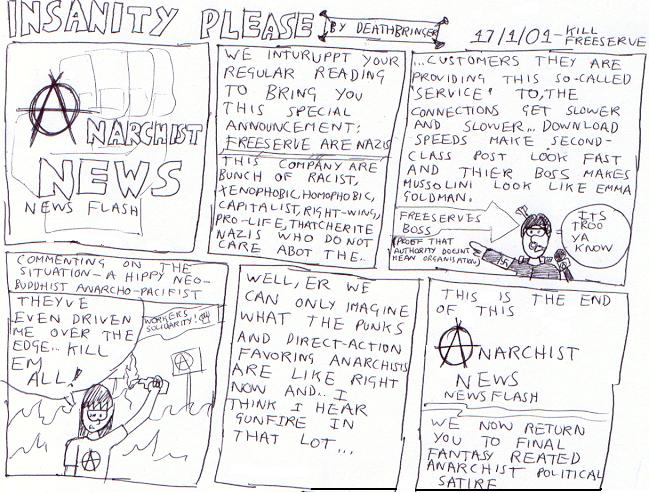 INSANITY PLEASE
BY DEATHBRINGER
17/1/01-KILL
FREESERVE
ANARCHIST
NEWS
NEWS FLASH
WE INTURUPPT YOUR
REGULAR READING
TO BRING YOU
THIS SPECIAL
ANNOUNCEMENT:
FREESERVE ARE NAZIS
THIS COMPANY ARE
BUNCH OF RACIST,
XENOPHOBIC, HOMOPHOBIC,
CAPITALIST, RIGHT-WING,
PRO-LIFE, THATCHERITE
NAZIS WHO DO NOT
CARE ABOT THE..
...CUSTOMERS THEY ARE
PROVIDING THIS SO-CALLED
'SERVICE' TO, THE
CONNECTIONS GET SLOWER
AND SLOWER... DOWNLOAD
SPEEDS MAKE SECOND-
CLASS POST LOOK FAST
AND THIER BOSS MAKES
MUSSOLINI LOOK LIKE EMMA
GOLDMAN.
FREESERVES
BOSS
(PROOF THAT
AUTHORITY DOESNT
MEAN ORGANISATION)
ITS
TROO
YA
KNOW
COMMENTING ON THE
SITUATION- A HIPPY NEO-
BUDDHIST ANARCHO-PACIFIST
THEYVE
EVEN DRIVEN
ME OVER THE
EDGE... KILL
EM
ALL!
WORKERS
SOLIDARITY!
A
A
WELL, ER WE
CAN ONLY IMAGINE
WHAT THE PUNKS
AND DIRECT-ACTION
FAVORING ANARCHISTS
ARE LIKE RIGHT
NOW AND.. I
THINK I HEAR
GUNFIRE IN
THAT LOT...
THIS IS THE END
OF THIS
ANARCHIST
NEWS
NEWS FLASH
WE NOW RETURN
YOU TO FINAL
FANTASY REATED
ANARCHIST POLITICAL
SATIRE